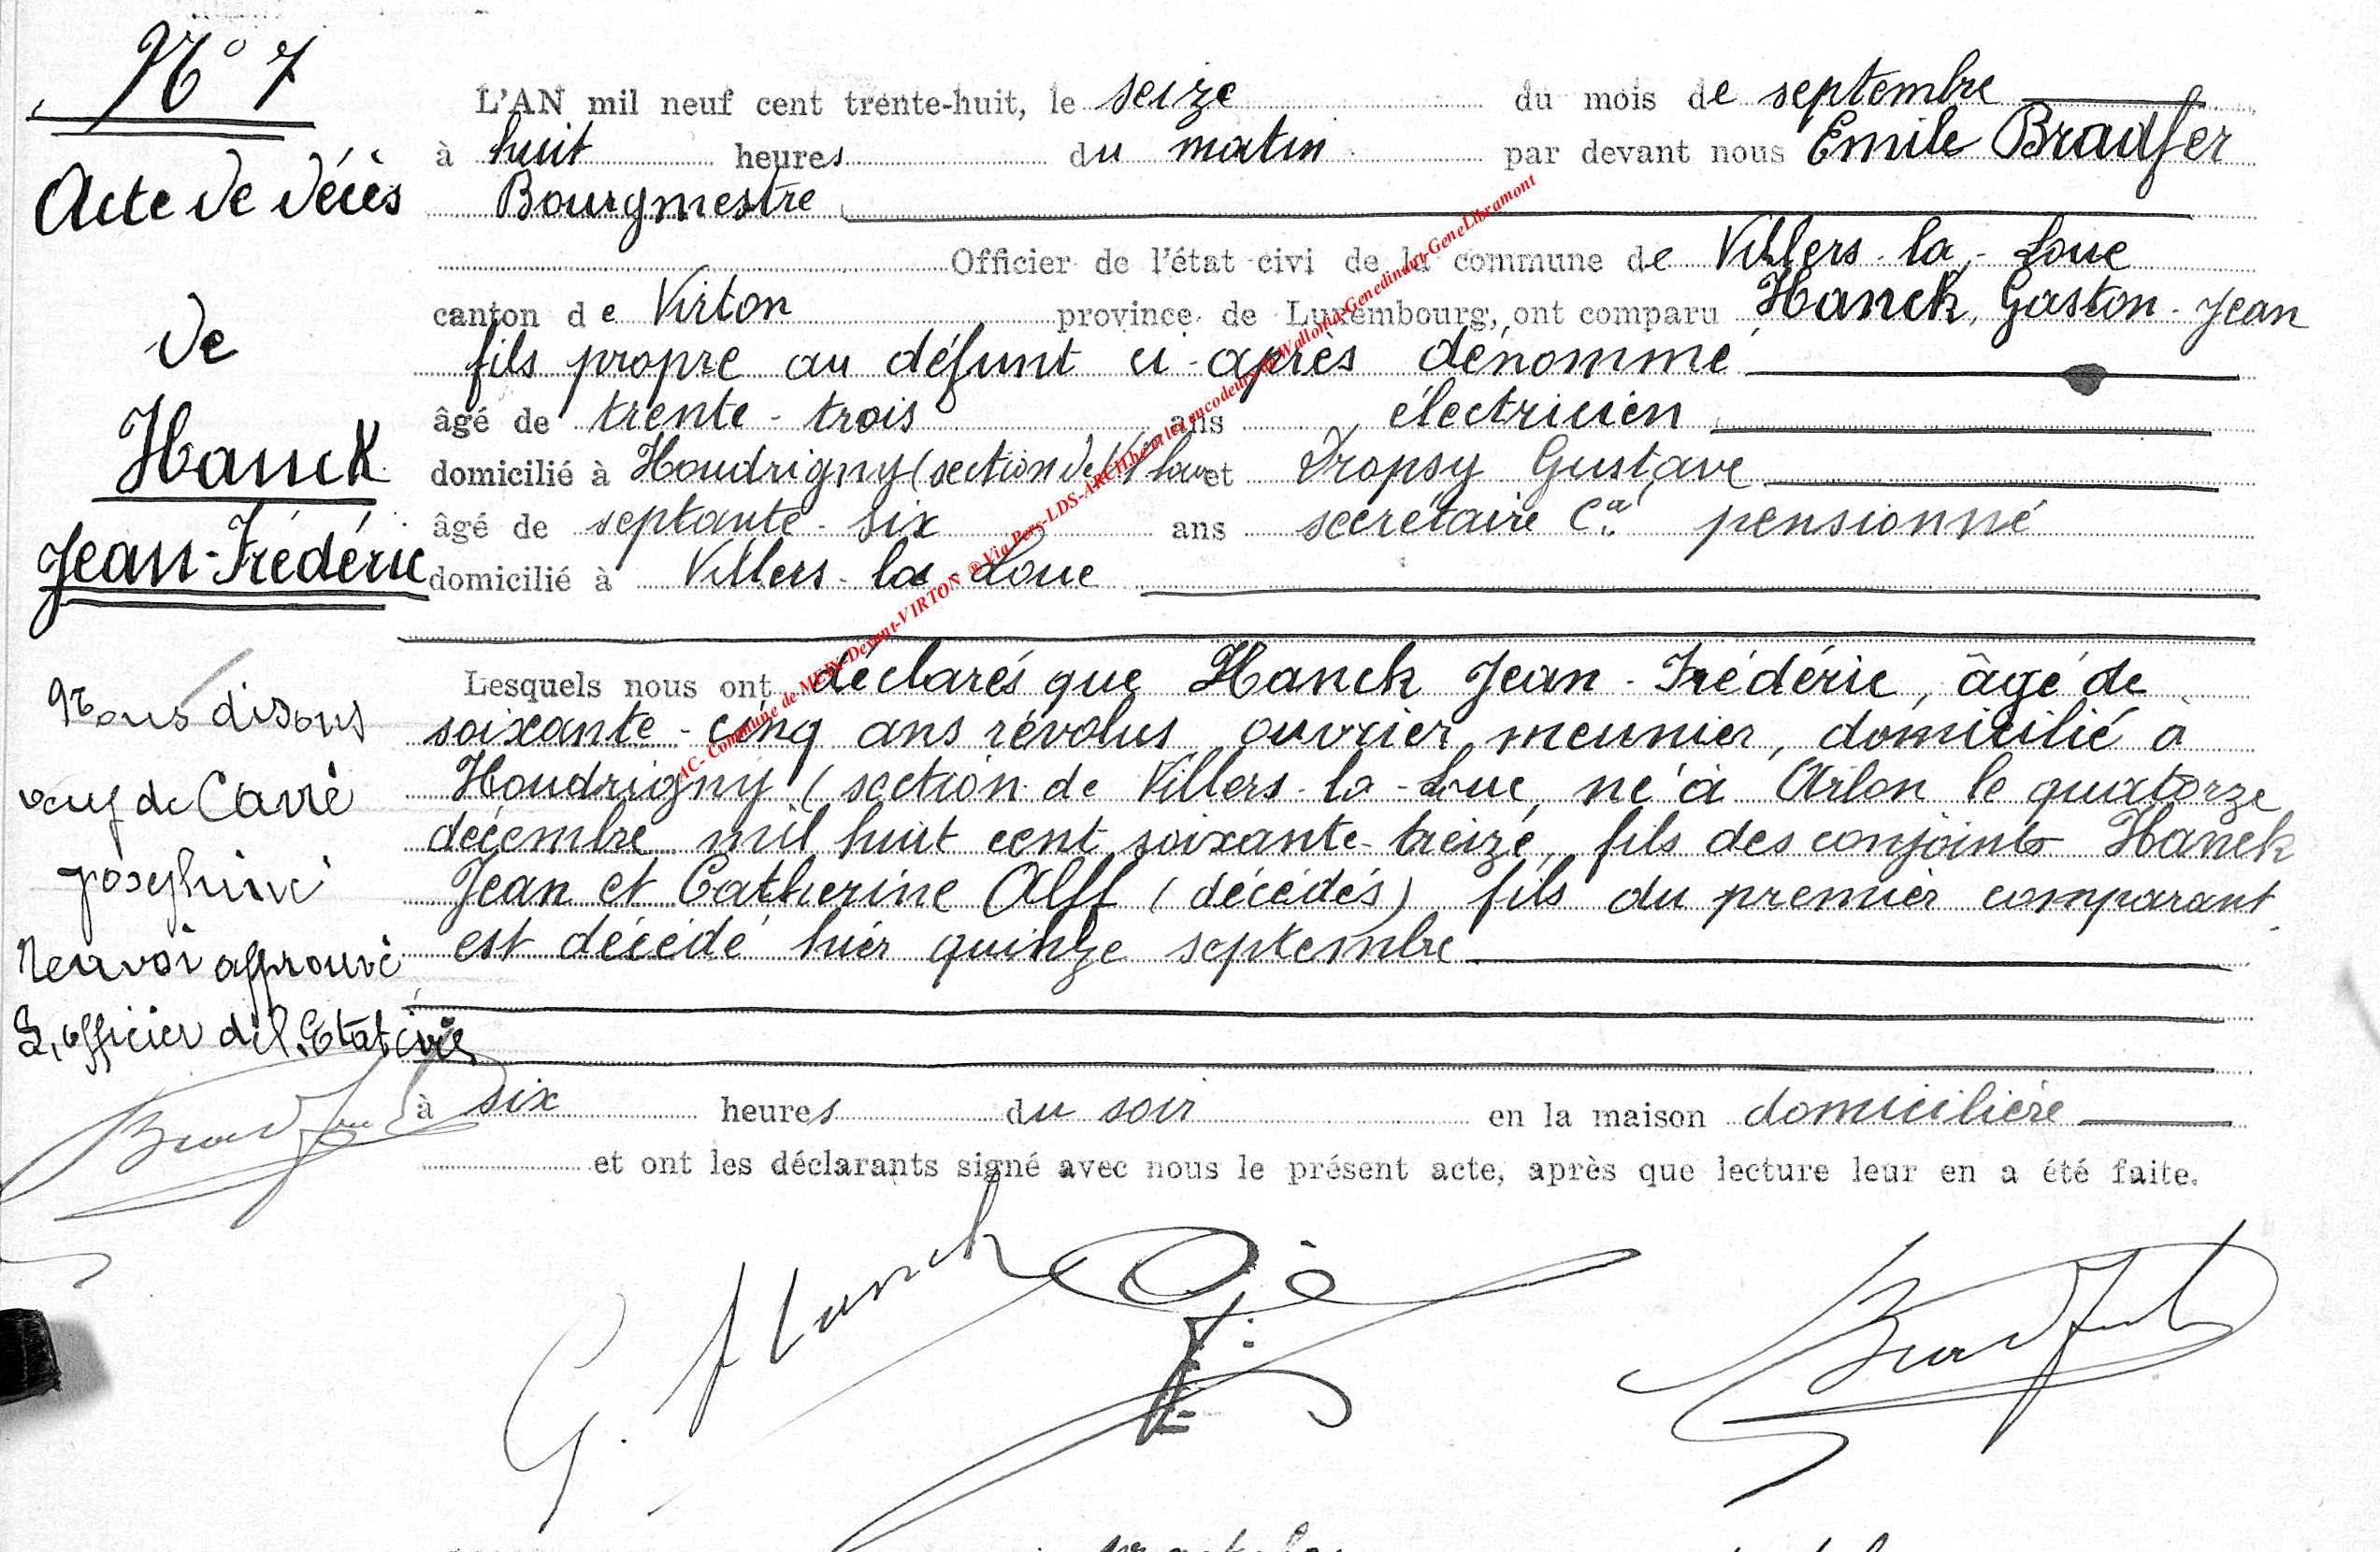 N° 7
Acte de décès
de
Hanck
Jean-Frédéric
Nous disons
veuf de Carré
Joséphine
Renvoi approuvé
L'officier de l'Etat civil
Bradfer
L'AN mil neuf cent trente-huit, le seize du mois de septembre
à huit heures du matin par devant nous Emile Bradfer
Bourgmestre
Officier de l'état civi de la commune de Villers-la-Loue
canton de Virton province de Luxembourg, ont comparu Hanck, Gaston-Jean
fils propre au défunt ci-après dénommé
âgé de trente-trois ans électricien
domicilié à Houdrigny (section de V/ loue et Dropsy Gustave
âgé de septante-six ans secrétaire Cal pensionné
domicilié à Villers-la-Loue
Lesquels nous ont déclarés que Hanck Jean-Frédéric, âgé de
soixante-cinq ans révolus, ouvrier meunier, domicilié à
Houdrigny (section de Villers-la-Loue, né à Arlon le quatorze
décembre mil huit cent soixante-treize, fils des conjoints Hanck
Jean et Catherine Alff (décédés) fils du premier comparant
est décédé hier quinze septembre
à six heures du soir en la maison domicilière
et ont les déclarants signé avec nous le présent acte, après que lecture leur en a été faite.
G. Hanck
Bradfer
AC- Commune de MEIX-Devant-VIRTON ® Via Pers-LDS-ARCH.be et les encodeurs de Wallonia-Genedinant-GeneLibramont